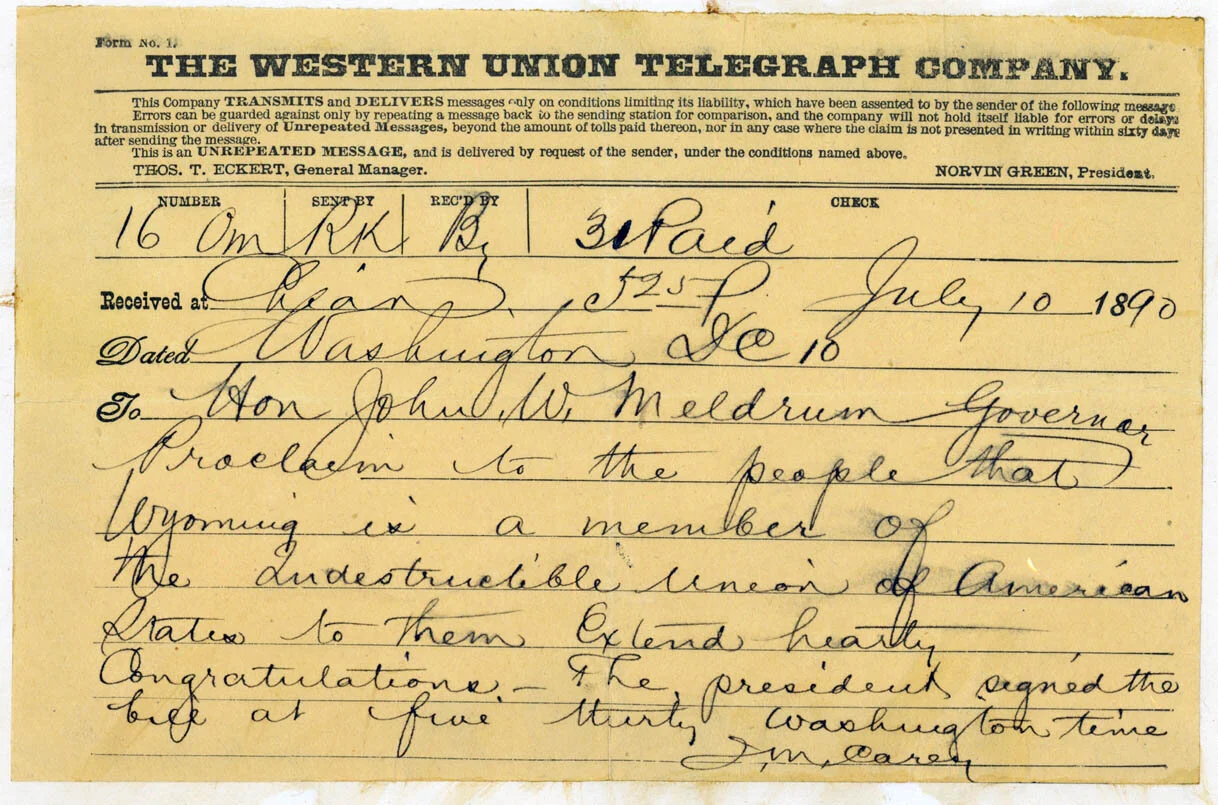 Form No. 1.
THE WESTERN UNION TELEGRAPH COMPANY.
This Company TRANSMITS and DELIVERS messages only on conditions limiting its liability, which have been assented to by the sender of the following message
Errors can be guarded against only by repeating a message back to the sending station for comparison, and the company will not hold itself liable for errors or delays
in transmission or delivery of Unrepeated Messages, beyond the amount of tolls paid thereon, nor in any case where the claim is not presented in writing within sixty days
after sending the message.
This is an UNREPEATED MESSAGE, and is delivered by request of the sender, under the conditions named above.
THOS. T. ECKERT, General Manager. NORVIN GREEN, President.
NUMBER SENT BY REC'D BY CHECK
16 Om RK By 31 Paid
Received at 525 P July 10 1890
Dated Washington DC 10
To Hon John W. Meldrum Governor
Proclaim to the people that
Wyoming is a member of
the Indestructible Union of American
States to them Extend hearty
Congratulations – The president signed the
bill at five thirty Washington time
J.M. Carey